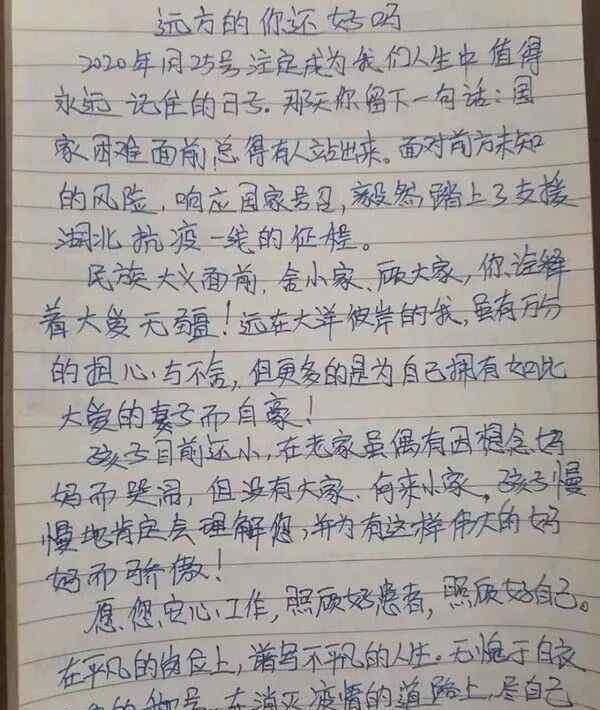 远方的你还好吗
2020年1月25号注定成为我们人生中值得
永远记住的日子。那天你留下一句话:国
家困难面前,总得有人站出来。面对前方未知
的风险,响应国家号召,毅然踏上了支援
湖北抗疫一线的征程。
民族大义面前,舍小家、顾大家,你诠释
着大爱无疆!远在大洋彼岸的我,虽有万分
的担心与不舍,但更多的是为自己拥有如此
大爱的妻子而自豪!
孩子目前还小,在老家虽偶有因想念妈
妈而哭闹,但没有大家、何来小家。孩子慢
慢地肯定会理解您,并为有这样伟大的妈
妈而骄傲!
愿您安心工作,照顾好患者,照顾好自己。
在平凡的岗位上,谱写不平凡的人生。无愧于白衣
的称号,在消灭疫情的道路上,尽自己